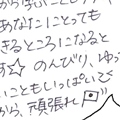 から
あなたにとっても
きるところになると
す☆ のんびり、ゆっ
いこともいっぱいで
から、頑張れ